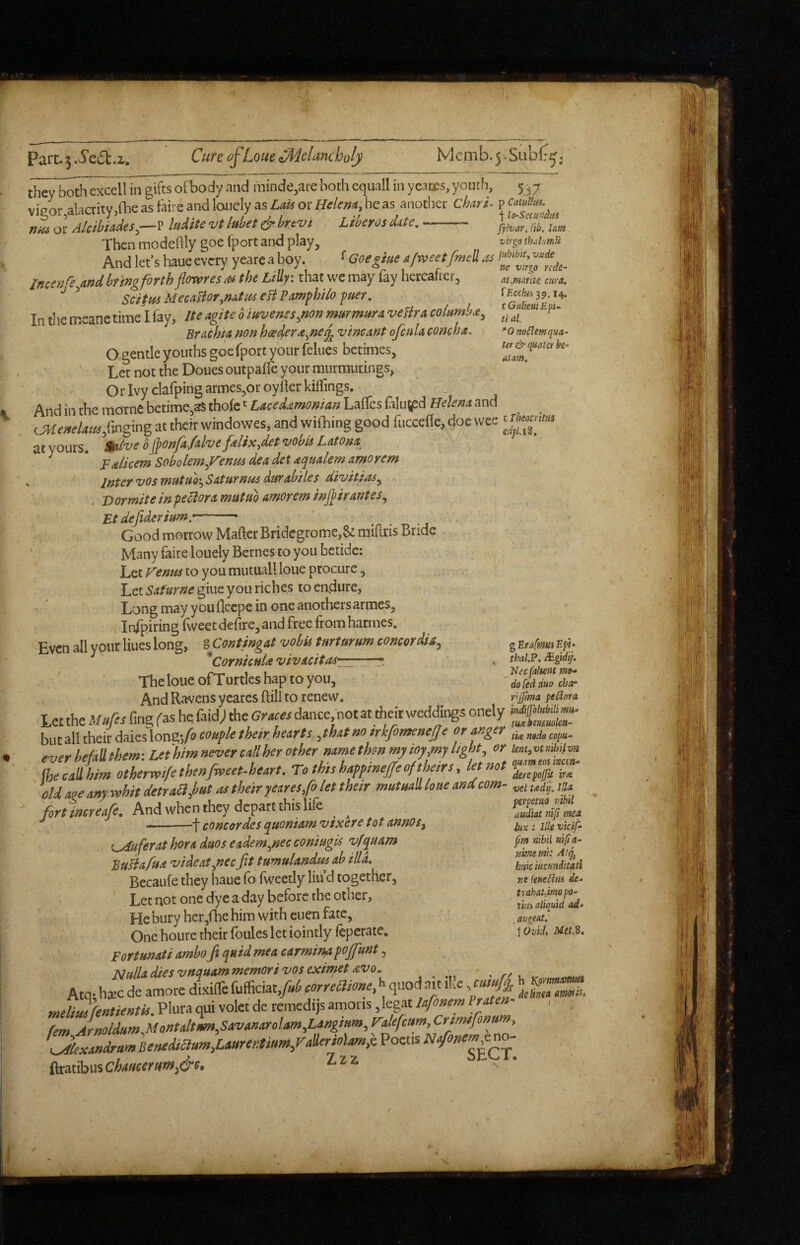 Part.3.Sect.2. Cure of Loue Melancholy Memb.5.Subs.5.
they both excell in gifts of body and minde, are both equall in yeares, youth, 537
vigor, alacrity, she as faire and louely as Lais or Helena, he as another Chari-
nus or Alcibiades,—p ludite vt lubet & brevi Liberos date.——
Then modestly goe sport and play,
And let's haue every yeare a boy. f Goe giue a sweet smell as
Incense, and bring forth flowres as the Lilly: that we may say hereafter,
Scitus Mecastor, natus est Pamphilo puer.
In the meane time I say, Ite agite ô iuvenes, non murmura vestra columbæ,
Brachia non hæderæ, neq; vincant oscula conchæ.
O gentle youths goe sport your selues betimes,
Let not the Doues outpasse your murmurings,
Or Ivy clasping armes, or oyster kissings.
And in the morne betime, as those t Lacedæmonian Lasses saluted Helena and
Menelaus, singing at their windowes, and wishing good successe, doe wee
at yours. Salve ô sponsa, salve fælix, det vobis Latona
Fælicem Sobolem, Venus dea det æqualem amorem
Inter vos mutuò; Saturnus durabiles divitias,
Dormite in pectora mutuò amorem inspirantes,
Et desiderium.——
Good morrow Master Bridegrome, & mistris Bride
Many faire louely Bernes to you betide:
Let Venus to you mutuall loue procure,
Let Saturne giue you riches to endure,
Long may you sleepe in one anothers armes,
Inspiring sweet desire, and free from harmes.
Even all your liues long, g Contingat vobis turturum concordia,
Corniculæ vivacitas——
The loue of Turtles hap to you,
And Ravens yeares still to renew.
Let the Muses sing (as he said) the Graces dance, not at their weddings onely
but all their daies long; so couple their hearts, that no irksomenesse or anger
ever befall them: Let him never call her other name then my ioy, my light, or
she call him otherwise then sweet-heart. To this happinesse of theirs, let not
old age any whit detract, but as their yeares, so let their mutuall loue and com-
fort increase. And when they depart this life
——† concordes quoniam vixere tot annos,
Auferat hora duos eadem, nec coniugis vsquam
Busta suæ videat, nec sit tumulandus ab illa.
Because they haue so sweetly liu'd together,
Let not one dye a day before the other,
He bury her, she him with euen fate,
One houre their soules let iointly seperate.
Fortunati ambo si quid mea carmina possunt,
Nulla dies vnquam memori vos eximet ævo.
Atq; hæc de amore dixisse sufficiat, sub correctione, h quod ait ille, cuiusq;
melius sentientis. Plura qui volet de remedijs amoris, legat Iasonem Praten-
sem, Arnoldum, Montaltum, Savanarolam, Langium, Valescum, Crimisonum,
Alexandrum Benedictum, Laurentium, Valleriolam, è Poetis Nasonem, è no-
stratibus Chaucerum, &c.
Zzz SECT.
p Catullus.
† Io-Secundus
sylvar. lib. Iam
virgo thalamū
subibit, vnde
ne virgo rede-
at, marite cura.
f Ecclus 39.14.
r Galieni Epi-
thal.
*O noctem qua-
ter & quater be-
atam.
t Theocritus
edyl.18.
g Erasmus Epi-
thal.P. Ægidij.
Nec saltent mo-
do sed duo cha-
rissima pectora
indissolubili mu-
tuæ beneuolen-
tiæ nodo copu-
lent, vt nihil vn
quam eos incen-
dere possit iræ
vel tædij. Illa
perpetuo nihil
audiat nisi mea
lux : Ille vicis-
sim nihil nisi a-
nime mi: Atq;
huic iucunditati
ne senectus de-
trahat, imo po-
tius aliquid ad-
augeat.
† Ovid. Met.8.
h Kornmannus
de linea amoris.